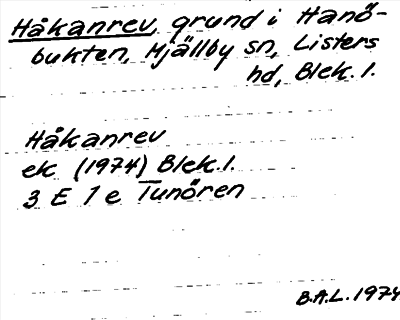 Håkanrev, grund i Hanö-
bukten, Mjällby sn, Listers
hd, Blek. l.
Håkanrev
ek (1974) Blek. l.
3 E 1 e Tunören
B.A.L. 1974